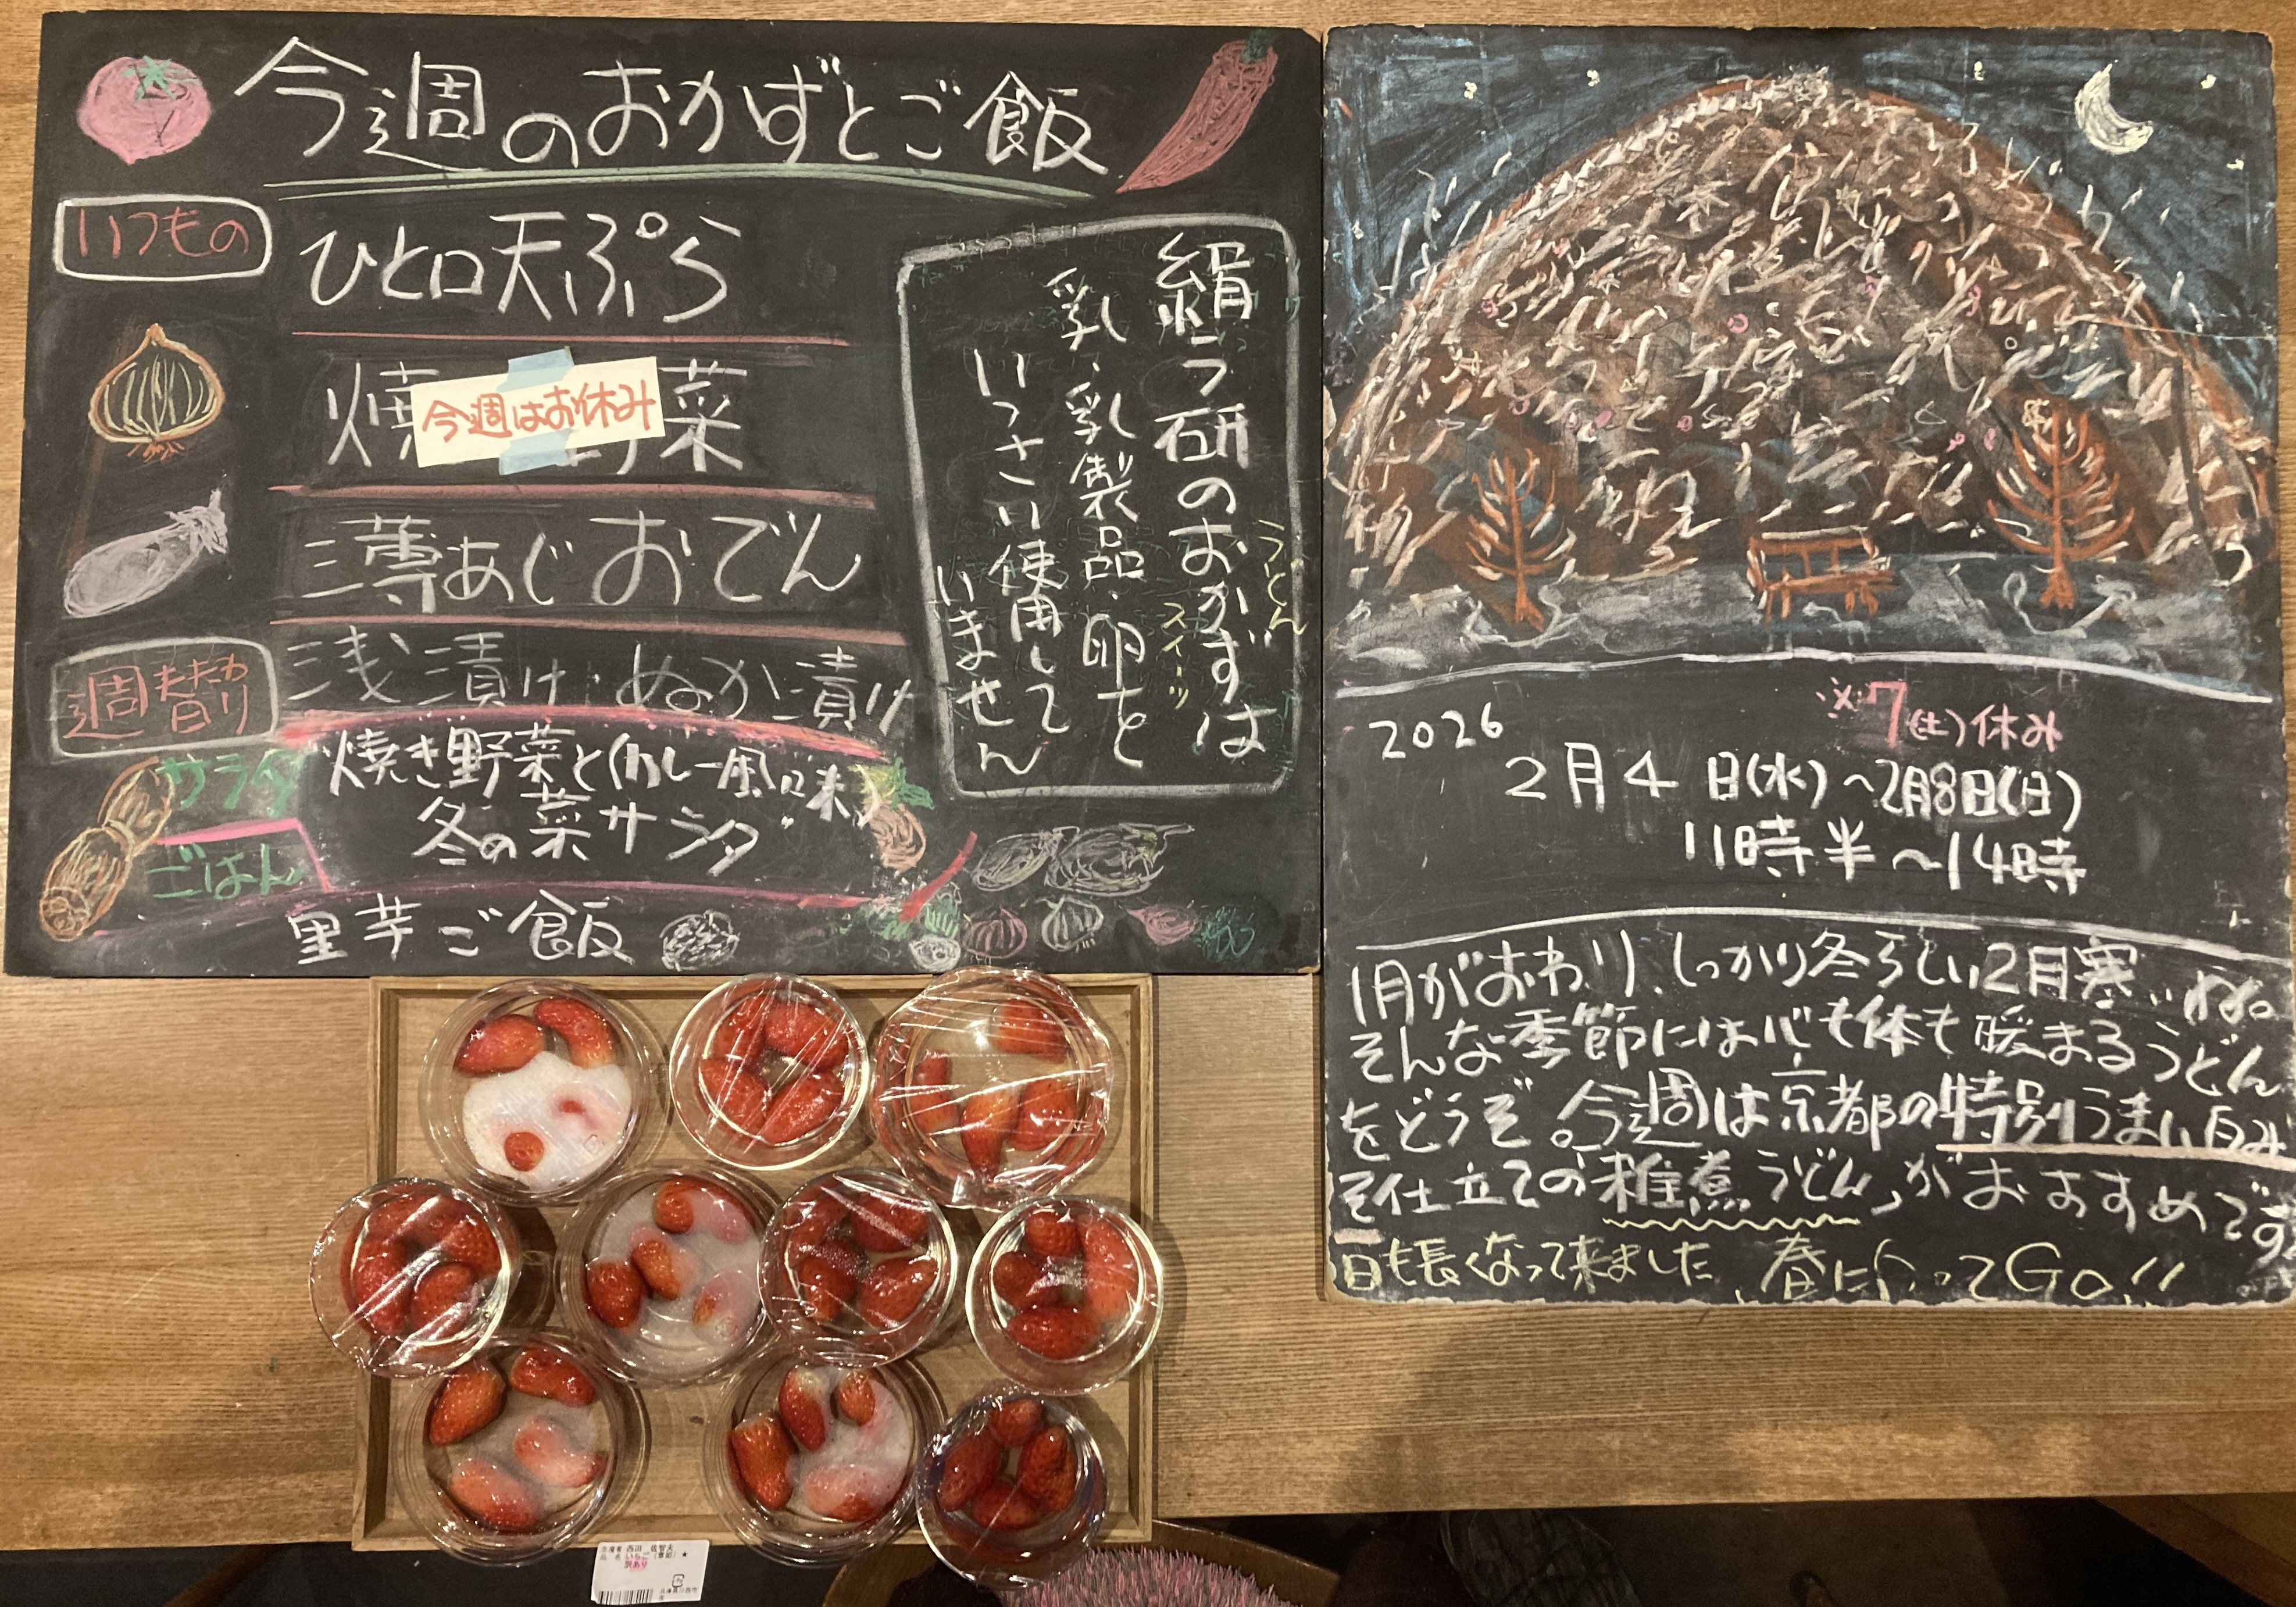 今週のおかずとご飯
いつもの
ひと口天ぷら
焼 菜
今週はお休み
三尊あじおでん
浅漬け・ぬか漬け
週替わり
サラダ
焼き野菜と(カレー風味)
冬の菜サラダ
ごはん
里芋ご飯
絹う研のおかずは
うどん
スイーツ
乳、乳製品・卵を
いっさい使用して
いません
※7(土)休み
2026
2月4日(水)~2月8日(日)
11時半~14時
1月がおわり、しっかり冬らしい2月寒いね。
そんな季節には心も体も暖まるうどん
をどうぞ。今週は京都の特別うまい白み
そ仕立ての「雑煮うどん」がおすすめです
日も長くなって来ました 春に向ってGO!!
生産者 西田
品名 いちご(章姫) ★
訳あり
兵庫県川西市